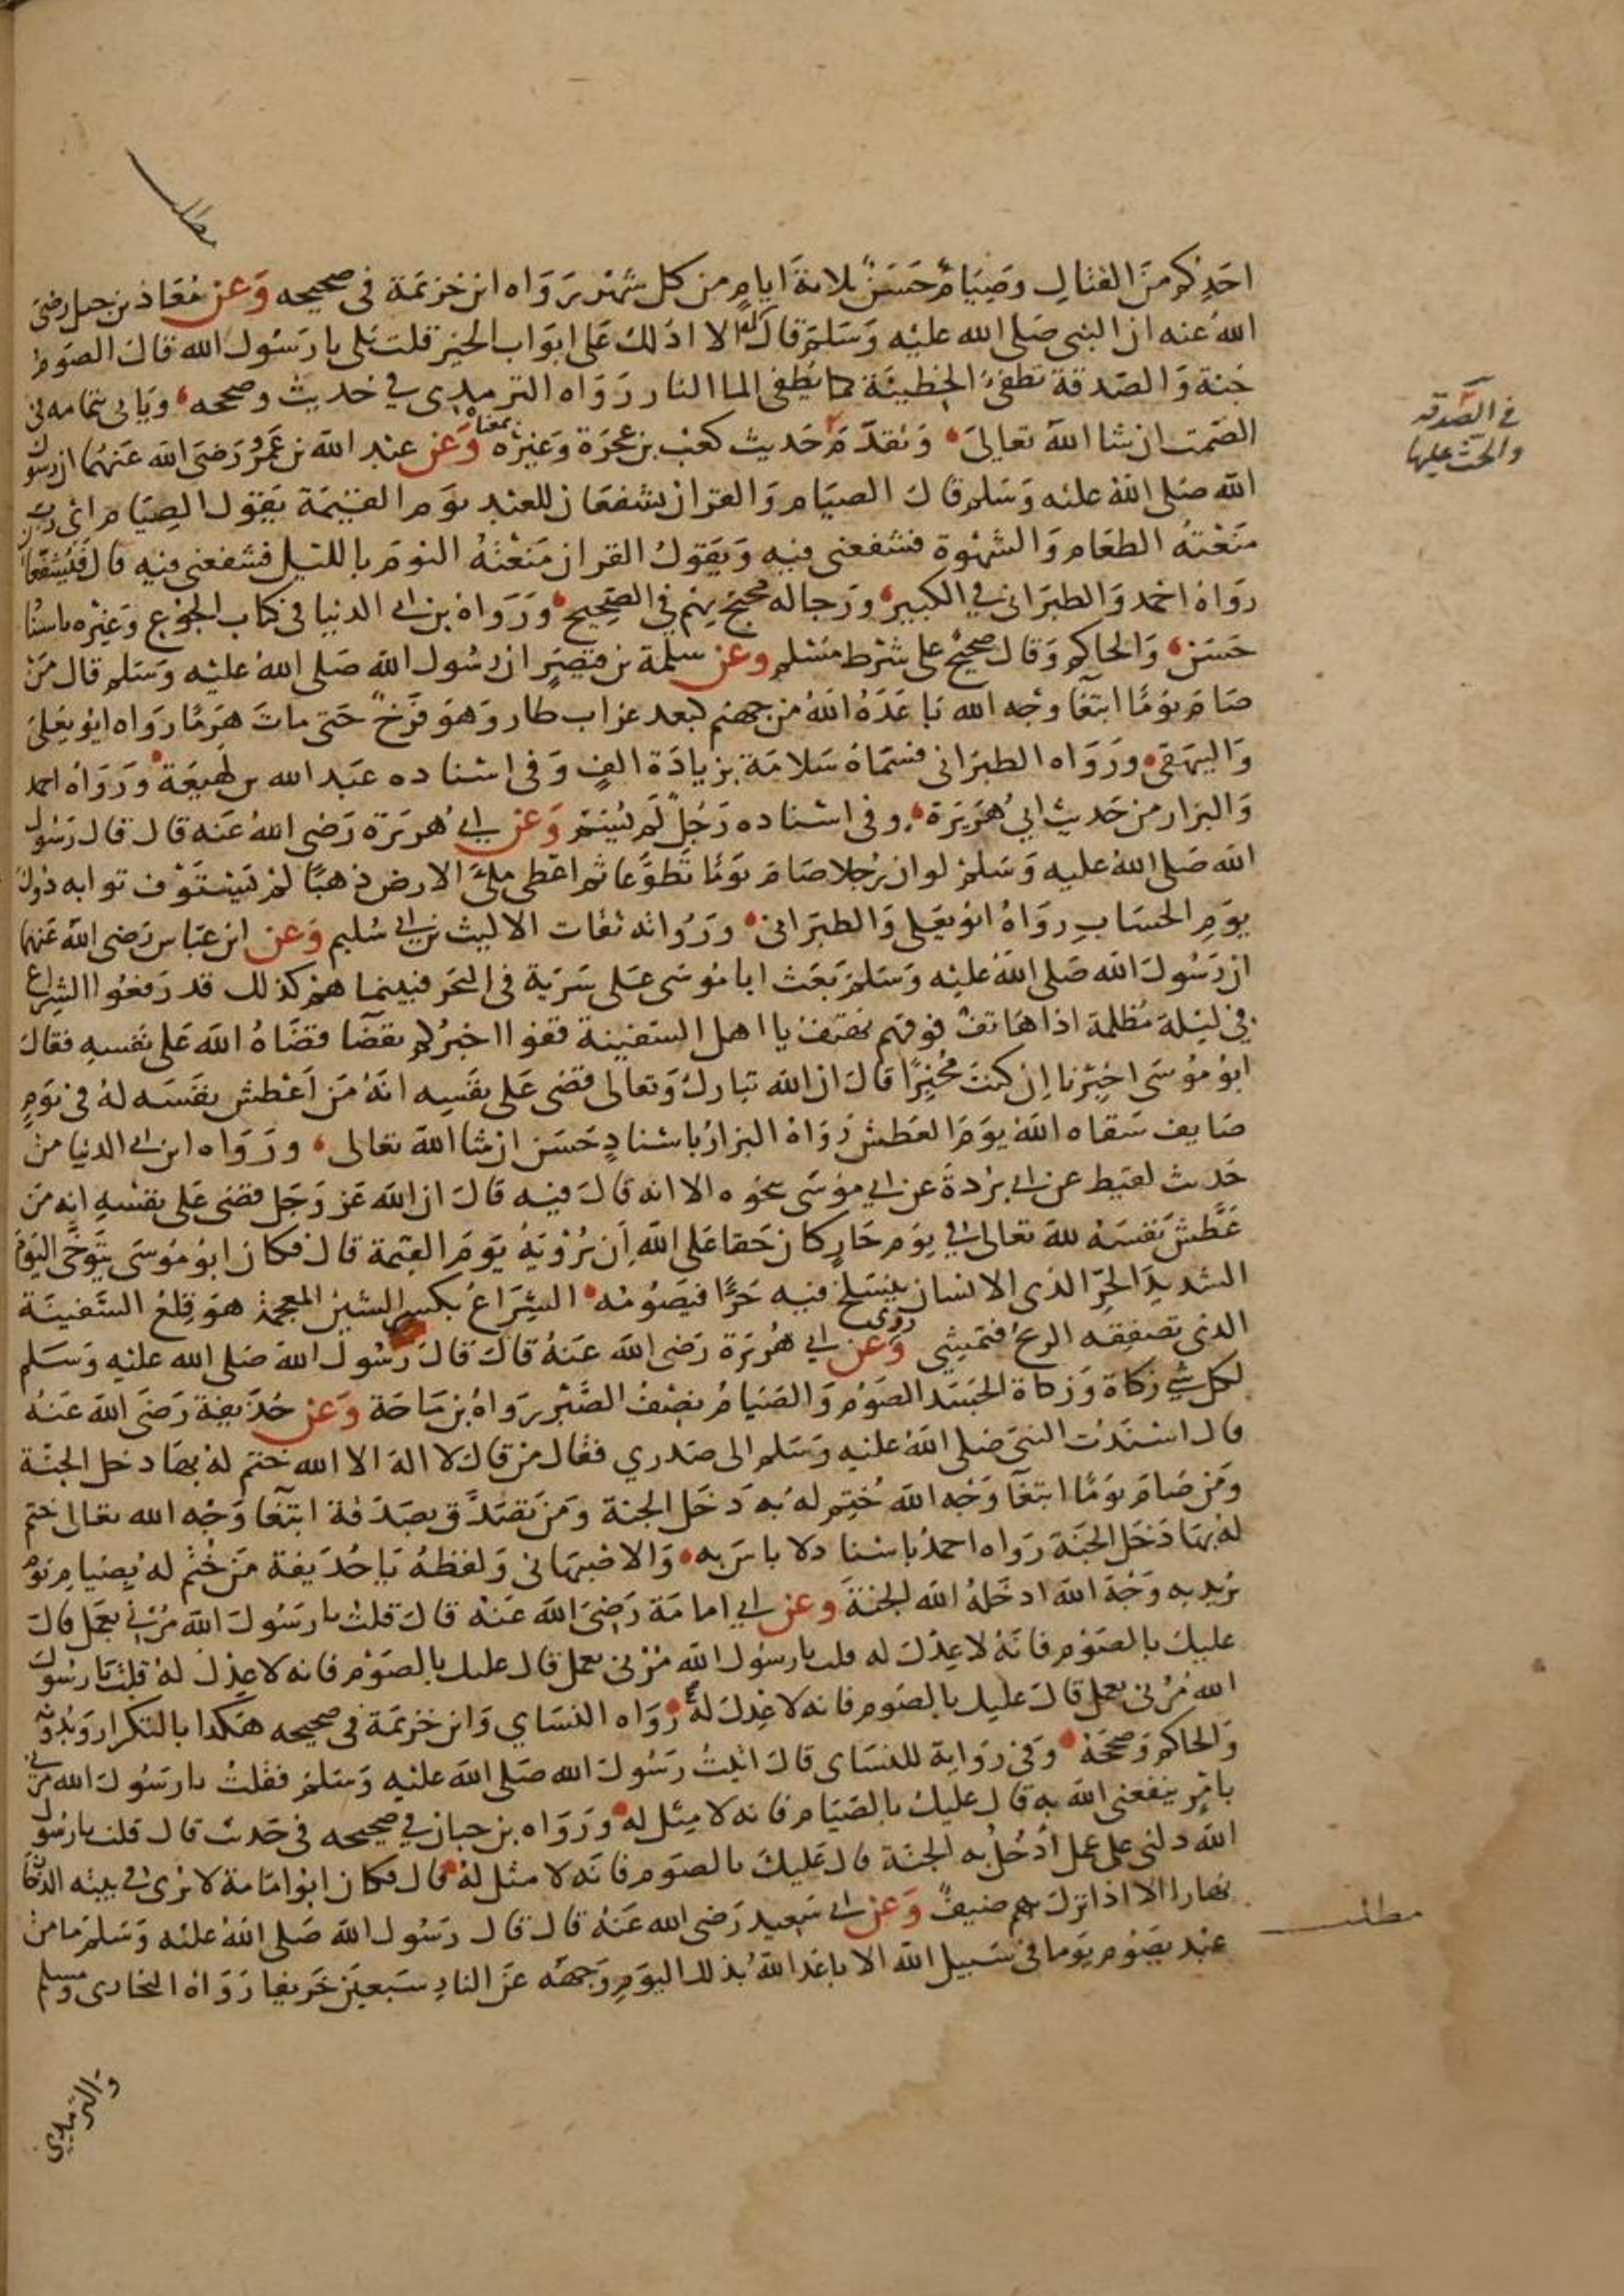 مطلب
احدكم من القتال وصيام حسن ثلاثة ايام من كل شهر رواه ابن خزيمة في صحيحه وعن معاذ بن جبل رضي
الله عنه ان النبي صلى الله عليه وسلم قال له الا ادلك على ابواب الخير قلت بلى يا رسول الله قال الصوم
جنة والصدقة تطفئ الخطيئة كما يطفئ الما النار رواه الترمذي في حديث وصححه ويأتي بتمامه في
الصمت ان شا الله تعالى وتقدم حديث كعب بن عجرة وغيره بمعناه وعن عبد الله بن عمر رضي الله عنهما ان رسول
الله صلى الله عليه وسلم قال الصيام والقران يشفعان للعبد يوم القيمة يقول الصيام اي رب
منعته الطعام والشهوة فشفعني فيه ويقول القران منعته النوم بالليل فشفعني فيه قال فيشفعان
رواه احمد والطبراني في الكبير ورجاله محتج بهم في الصحيح ورواه بن ابي الدنيا في كتاب الجوع وغيره باسناد
حسن والحاكم وقال صحيح على شرط مسلم وعن سلمة بن قيصر ان رسول الله صلى الله عليه وسلم قال من
صام يوما ابتغا وجه الله باعده الله من جهنم كبعد غراب طار وهو فرخ حتى مات هرما رواه ابو يعلى
والبيهقي ورواه الطبراني فسماه سلامة بزيادة الف وفي اسناده عبد الله بن لهيعة ورواه احمد
والبزار من حديث ابي هريرة وفي اسناده رجل لم يسم وعن ابي هريرة رضي الله عنه قال قال رسول
الله صلى الله عليه وسلم لو ان رجلا صام يوما تطوعا ثم اعطي ملئ الارض ذهبا لم يستوف ثوابه دون
يوم الحساب رواه ابو يعلى والطبراني ورواته ثقات الا ليث بن ابي سليم وعن ابن عباس رضي الله عنهما
ان رسول الله صلى الله عليه وسلم بعث ابا موسى على سرية في البحر فبينما هم كذلك قد رفعوا الشراع
في ليلة مظلمة اذا هاتف فوقهم يهتف يا اهل السفينة قفوا اخبركم بقضا قضاه الله على نفسه فقال
ابو موسى اخبرنا ان كنت مخبرا قال ان الله تبارك وتعالى قضى على نفسه انه من اعطش نفسه له في يوم
صايف سقاه الله يوم العطش رواه البزار باسناد حسن ان شا الله تعالى ورواه ابن ابي الدنيا من
حديث لقيط عن ابي بردة عن ابي موسى بنحوه الا انه قال فيه قال ان الله عز وجل قضى على نفسه انه من
عطش نفسه لله تعالى في يوم حار كان حقا على الله ان يرويه يوم القيمة قال فكان ابو موسى يتوخى اليوم
الشديد الحر الذي الانسان ينسلخ فيه حرا فيصومه الشراع بكسر الشين المعجمة هو قلع السفينة
الذي تصفقه الريح فتمشي وروي عن ابي هريرة رضي الله عنه قال قال رسول الله صلى الله عليه وسلم
لكل شي زكاة وزكاة الجسد الصوم والصيام نصف الصبر رواه بن ماجة وعن حذيفة رضي الله عنه
قال اسندت النبي صلى الله عليه وسلم الى صدري فقال من قال لا اله الا الله ختم له بها دخل الجنة
ومن صام يوما ابتغا وجه الله ختم له به دخل الجنة ومن تصدق بصدقة ابتغا وجه الله تعالى ختم
له بها دخل الجنة رواه احمد باسناد لا باس به والاصبهاني ولفظه يا حذيفة من ختم له بصيام يوم
يريد به وجه الله ادخله الله الجنة وعن ابي امامة رضي الله عنه قال قلت يا رسول الله مرني بعمل قال
عليك بالصوم فانه لا عدل له قلت يا رسول الله مرني بعمل قال عليك بالصوم فانه لا عدل له قلت يا رسول
الله مرني بعمل قال عليك بالصوم فانه لا عدل له رواه النساي وابن خزيمة في صحيحه هكدا بالتكرار وبدونه
والحاكم وصححه وفي رواية للنساي قال اتيت رسول الله صلى الله عليه وسلم فقلت يا رسول الله مرني
بامر ينفعني الله به قال عليك بالصيام فانه لا مثل له ورواه بن حبان في صحيحه في حديث قال قلت يا رسول
الله دلني على عمل ادخل به الجنة قال عليك بالصوم فانه لا مثل له قال فكان ابو امامة لا يرى في بيته الدخان
نهارا الا اذا نزل بهم ضيف وعن ابي سعيد رضي الله عنه قال قال رسول الله صلى الله عليه وسلم ما من
عبد يصوم يوما في سبيل الله الا باعد الله بذلك اليوم وجهه عن النار سبعين خريفا رواه البخاري ومسلم
والترمذي
في الصدقة
والحث عليها
مطلب